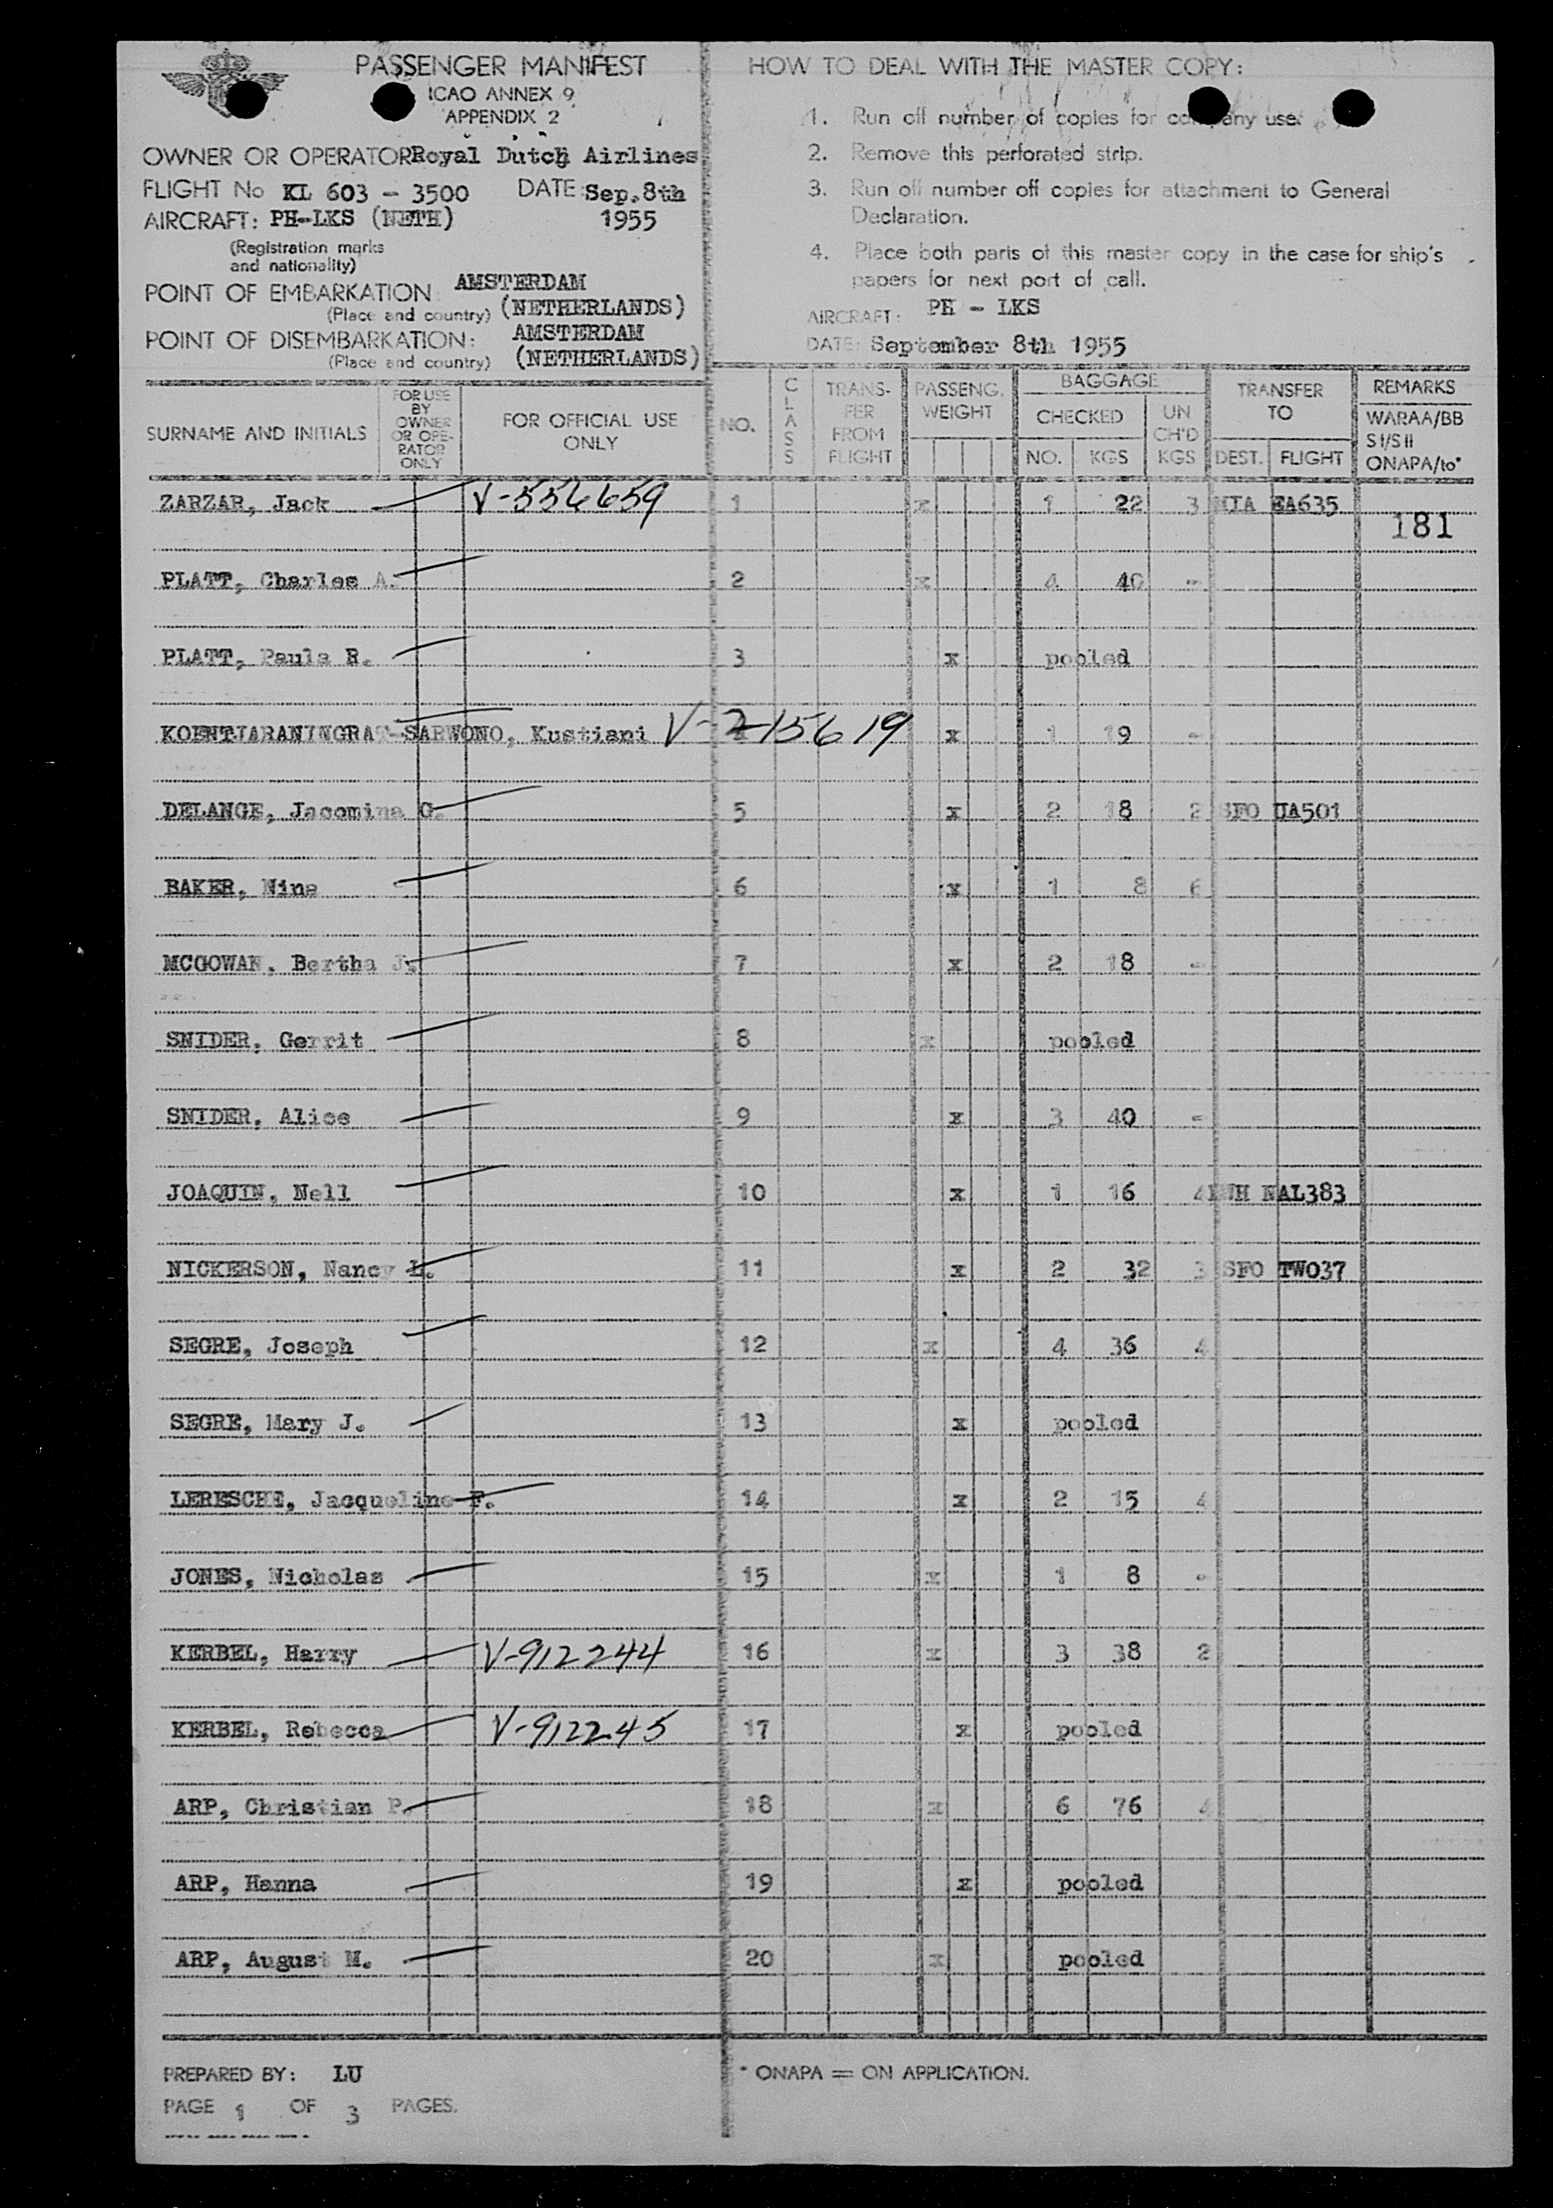 PASSENGER MANIFEST
ICAO ANNEX 9
APPENDIX 2
OWNER OR OPERATOR Royal Dutch Airlines
FLIGHT No KL 603 - 3500 DATE: Sep. 8th
AIRCRAFT: PH-LKS (NETH) 1955
(Registration marks
and nationality)
POINT OF EMBARKATION: AMSTERDAM
(Place and country) (NETHERLANDS)
POINT OF DISEMBARKATION: AMSTERDAM
(Place and country) (NETHERLANDS)
HOW TO DEAL WITH THE MASTER COPY:
1. Run off number of copies for company use.
2. Remove this perforated strip.
3. Run off number off copies for attachment to General
Declaration.
4. Place both parts of this master copy in the case for ship's
papers for next port of call.
AIRCRAFT: PH - LKS
DATE: September 8th 1955
SURNAME AND INITIALS
FOR USE
BY
OWNER
OR OPE-
RATOR
ONLY
FOR OFFICIAL USE
ONLY
NO.
CLASS
TRANS-
FER
FROM
FLIGHT
PASSENG.
WEIGHT
BAGGAGE
CHECKED
NO. KGS
UN
CH'D
KGS
TRANSFER
TO
DEST. FLIGHT
REMARKS
WARAA/BB
SI/SII
ONAPA/to*
ZARZAR, Jack V-556659 1 x 1 22 3 MIA EA635
181
PLATT, Charles A. 2 x 4 40 -
PLATT, Paula R. 3 x pooled
KOENTJARANINGRAT-SARWONO, Kustiani V-215619 x 1 19 -
DELANGE, Jacomina G. 5 x 2 18 2 SFO UA501
BAKER, Nina 6 x 1 8 6
MCGOWAN, Bertha J. 7 x 2 18 -
SNIDER, Gerrit 8 x pooled
SNIDER, Alice 9 x 3 40 -
JOAQUIN, Nell 10 x 1 16 4 NAL383
NICKERSON, Nancy L. 11 x 2 32 3 SFO TW037
SEGRE, Joseph 12 x 4 36 4
SEGRE, Mary J. 13 x pooled
LERESCHE, Jacqueline F. 14 x 2 15 4
JONES, Nicholas 15 x 1 8 -
KERBEL, Harry V-912244 16 x 3 38 2
KERBEL, Rebecca V-912245 17 x pooled
ARP, Christian P. 18 x 6 76 4
ARP, Hanna 19 x pooled
ARP, August M. 20 x pooled
PREPARED BY: LU
PAGE 1 OF 3 PAGES.
* ONAPA = ON APPLICATION.